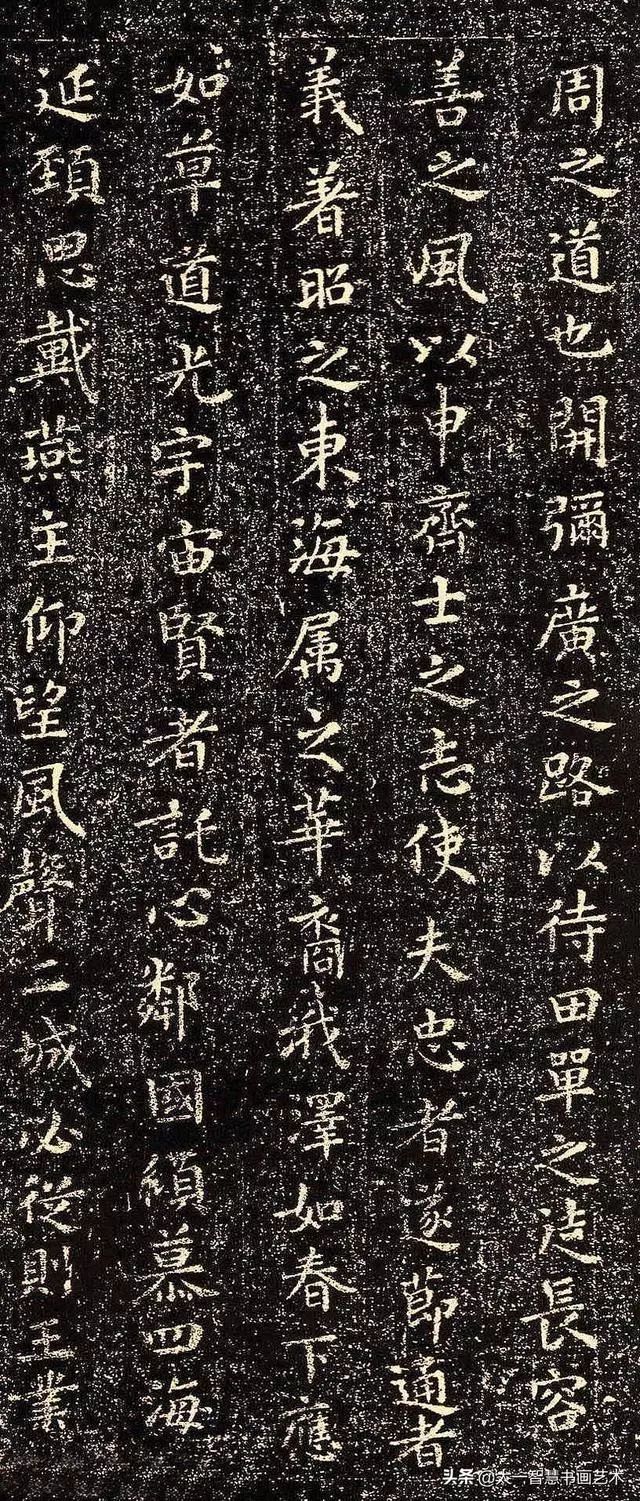 周之道也開彌廣之路以待田單之徒長容
善之風以申齊士之志使夫忠者遂節通者
義著昭之東海属之華裔我澤如春下應
如草道光宇宙賢者託心鄰國傾慕四海
延頚思戴燕主仰望風聲二城必從則王業
头条@天一智慧书画艺术